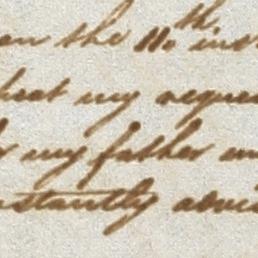 on the 11th inst
that my reques
by my father an
nstantly advis